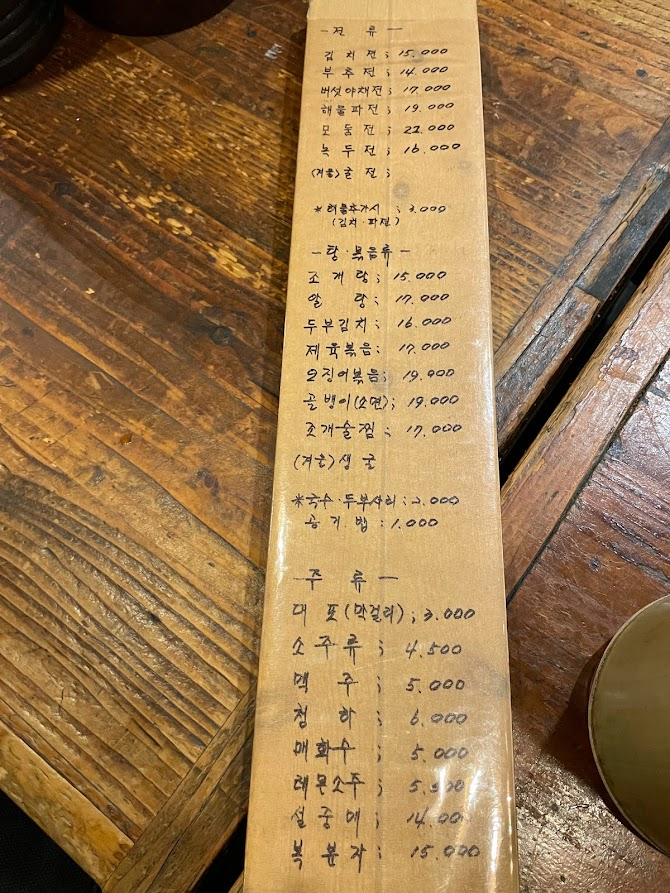 - 전 류 -
김 치 전 ; 15.000
부 추 전 ; 14.000
버섯야채전 ; 17.000
해물파전 ; 19.000
모 둠 전 ; 22.000
녹 두 전 ; 16.000
(겨울) 굴 전 ;
※ 해물추가시 ; 3.000
(김치·파전)
- 탕·볶음류 -
조 개 탕 ; 15.000
알 탕 ; 17.000
두부김치 ; 16.000
제육볶음 ; 17.000
오징어볶음 ; 19.000
골뱅이(소면) ; 19.000
조개술찜 ; 17.000
(겨울) 생 굴
※국수·두부사리 ; 2.000
공 기 밥 ; 1.000
- 주 류 -
대 포 (막걸리) ; 3.000
소 주 류 ; 4.500
맥 주 ; 5.000
청 하 ; 6.000
매화수 ; 5.000
레몬소주 ; 5.500
설 중 매 ; 14.000
복 분 자 ; 15.000